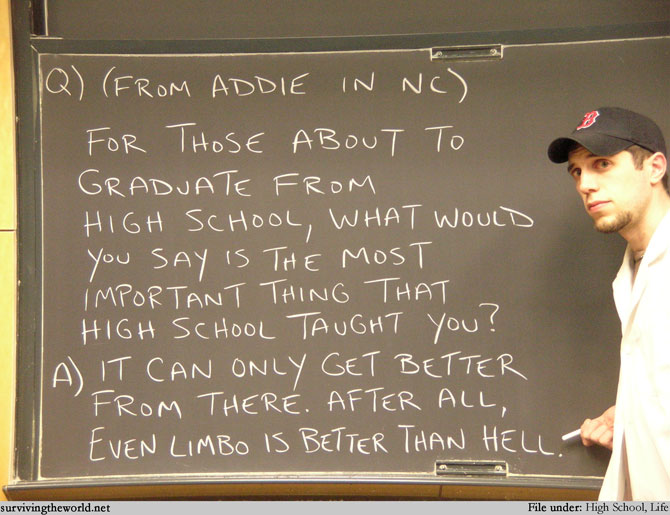 B
Q) (FROM ADDIE IN NC)
FOR THOSE ABOUT TO
GRADUATE FROM
HIGH SCHOOL, WHAT WOULD
YOU SAY IS THE MOST
IMPORTANT THING THAT
HIGH SCHOOL TAUGHT YOU?
A) IT CAN ONLY GET BETTER
FROM THERE. AFTER ALL,
EVEN LIMBO IS BETTER THAN HELL.
survivingtheworld.net File under: High School, Life